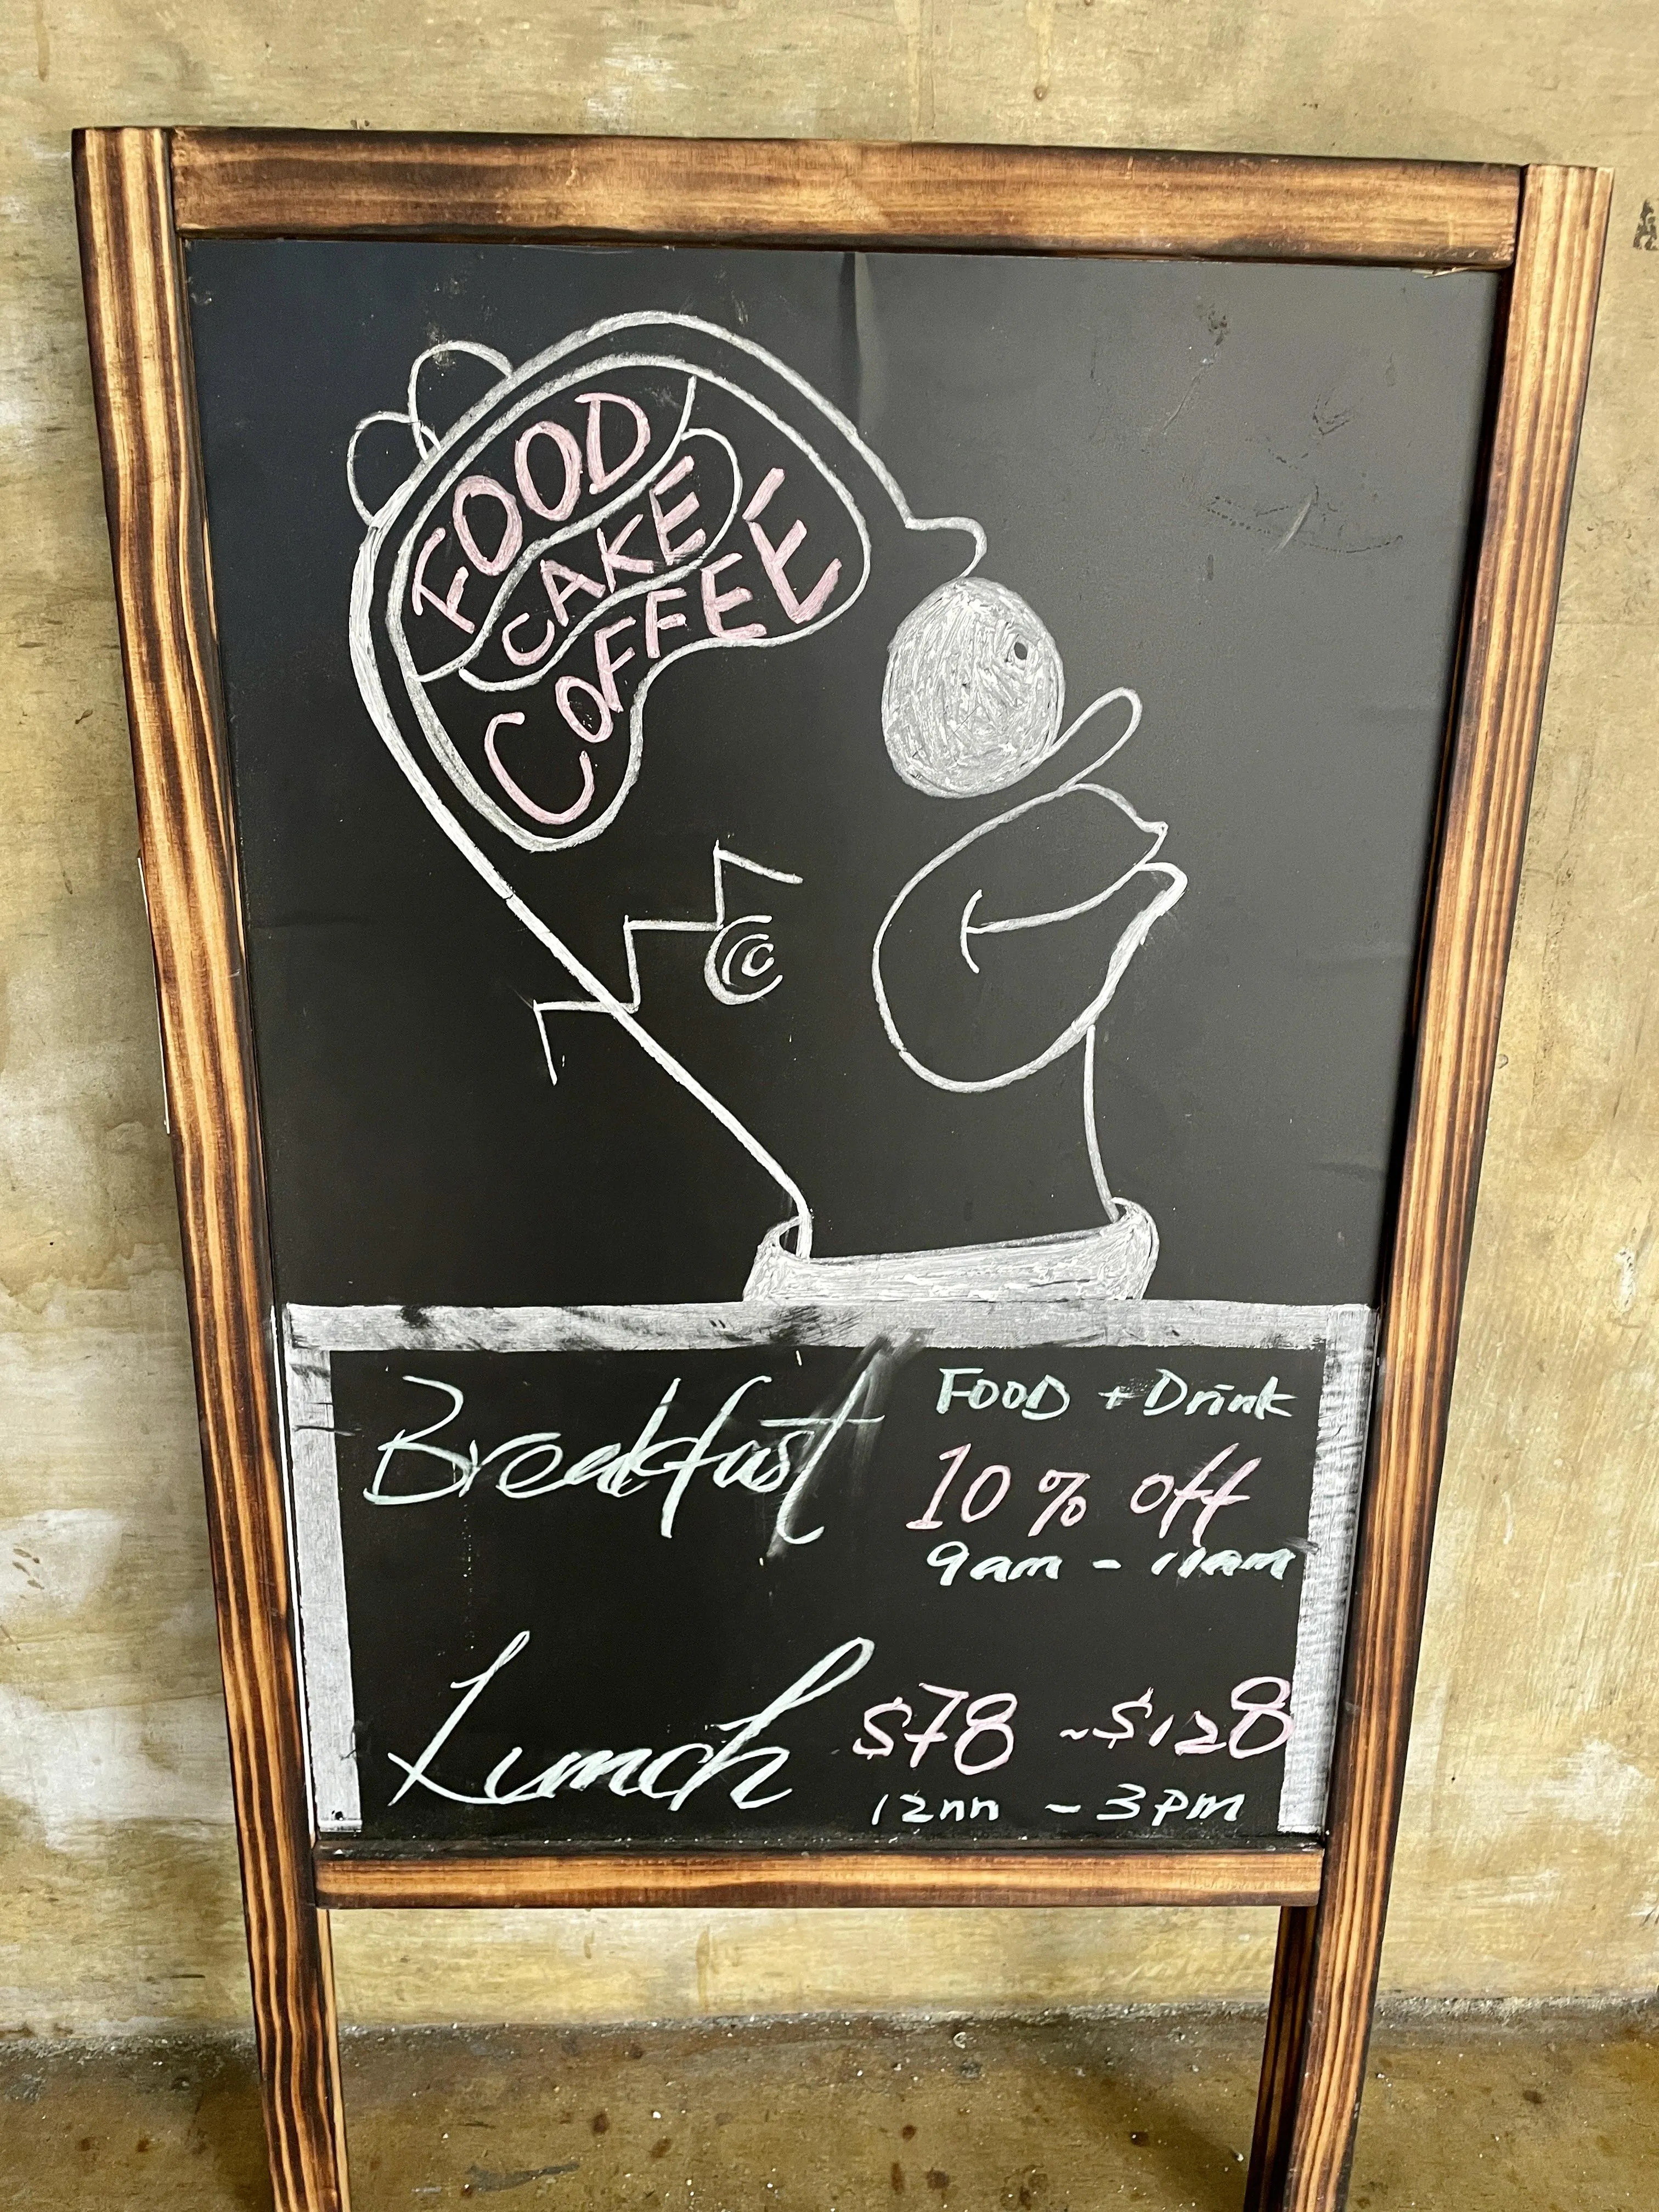 FOOD
CAKE
COFFEE
Breakfast
FOOD + Drink
10% off
9am - 11am
Lunch
$78 ~ $128
12nn - 3pm